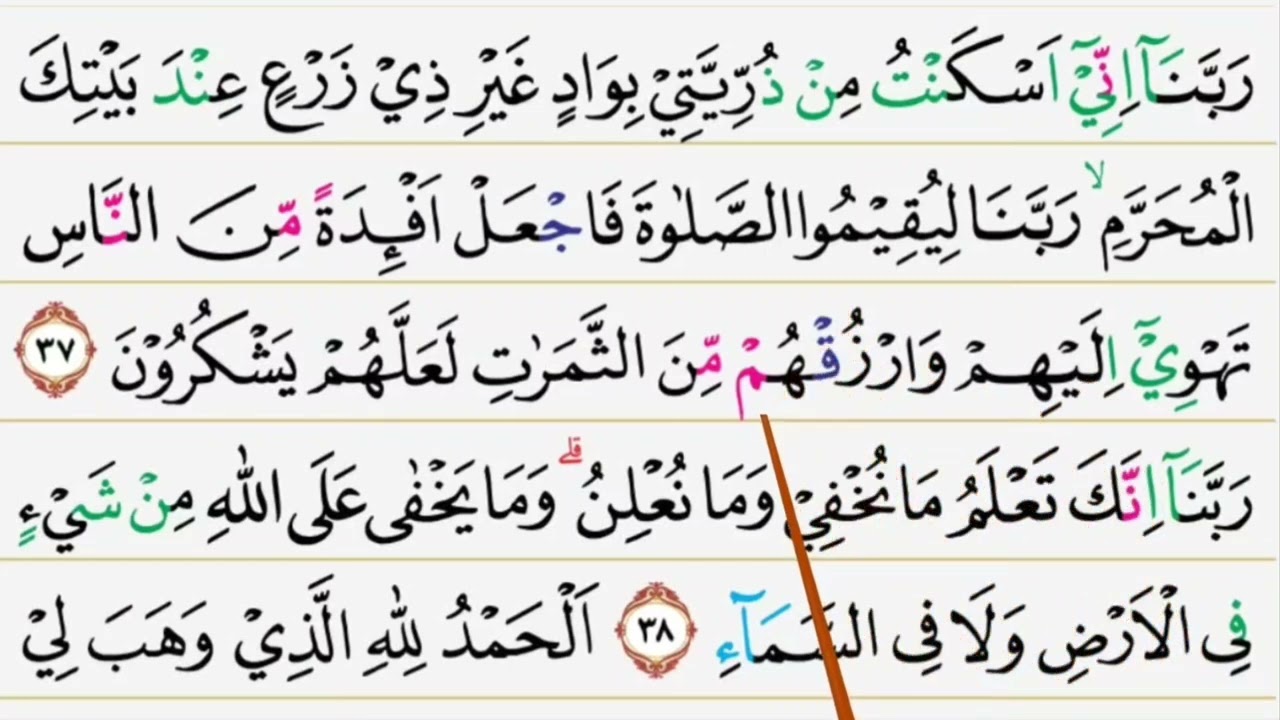 رَبَّنَآ اِنِّيْٓ اَسْكَنْتُ مِنْ ذُرِّيَّتِيْ بِوَادٍ غَيْرِ ذِيْ زَرْعٍ عِنْدَ بَيْتِكَ
الْمُحَرَّمِ ۙ رَبَّنَا لِيُقِيْمُوا الصَّلٰوةَ فَاجْعَلْ اَفْـِٕدَةً مِّنَ النَّاسِ
تَهْوِيْٓ اِلَيْهِمْ وَارْزُقْهُمْ مِّنَ الثَّمَرٰتِ لَعَلَّهُمْ يَشْكُرُوْنَ ٣٧
رَبَّنَآ اِنَّكَ تَعْلَمُ مَا نُخْفِيْ وَمَا نُعْلِنُ ۗ وَمَا يَخْفٰى عَلَى اللّٰهِ مِنْ شَيْءٍ
فِى الْاَرْضِ وَلَا فِى السَّمَآءِ ٣٨ اَلْحَمْدُ لِلّٰهِ الَّذِيْ وَهَبَ لِيْ